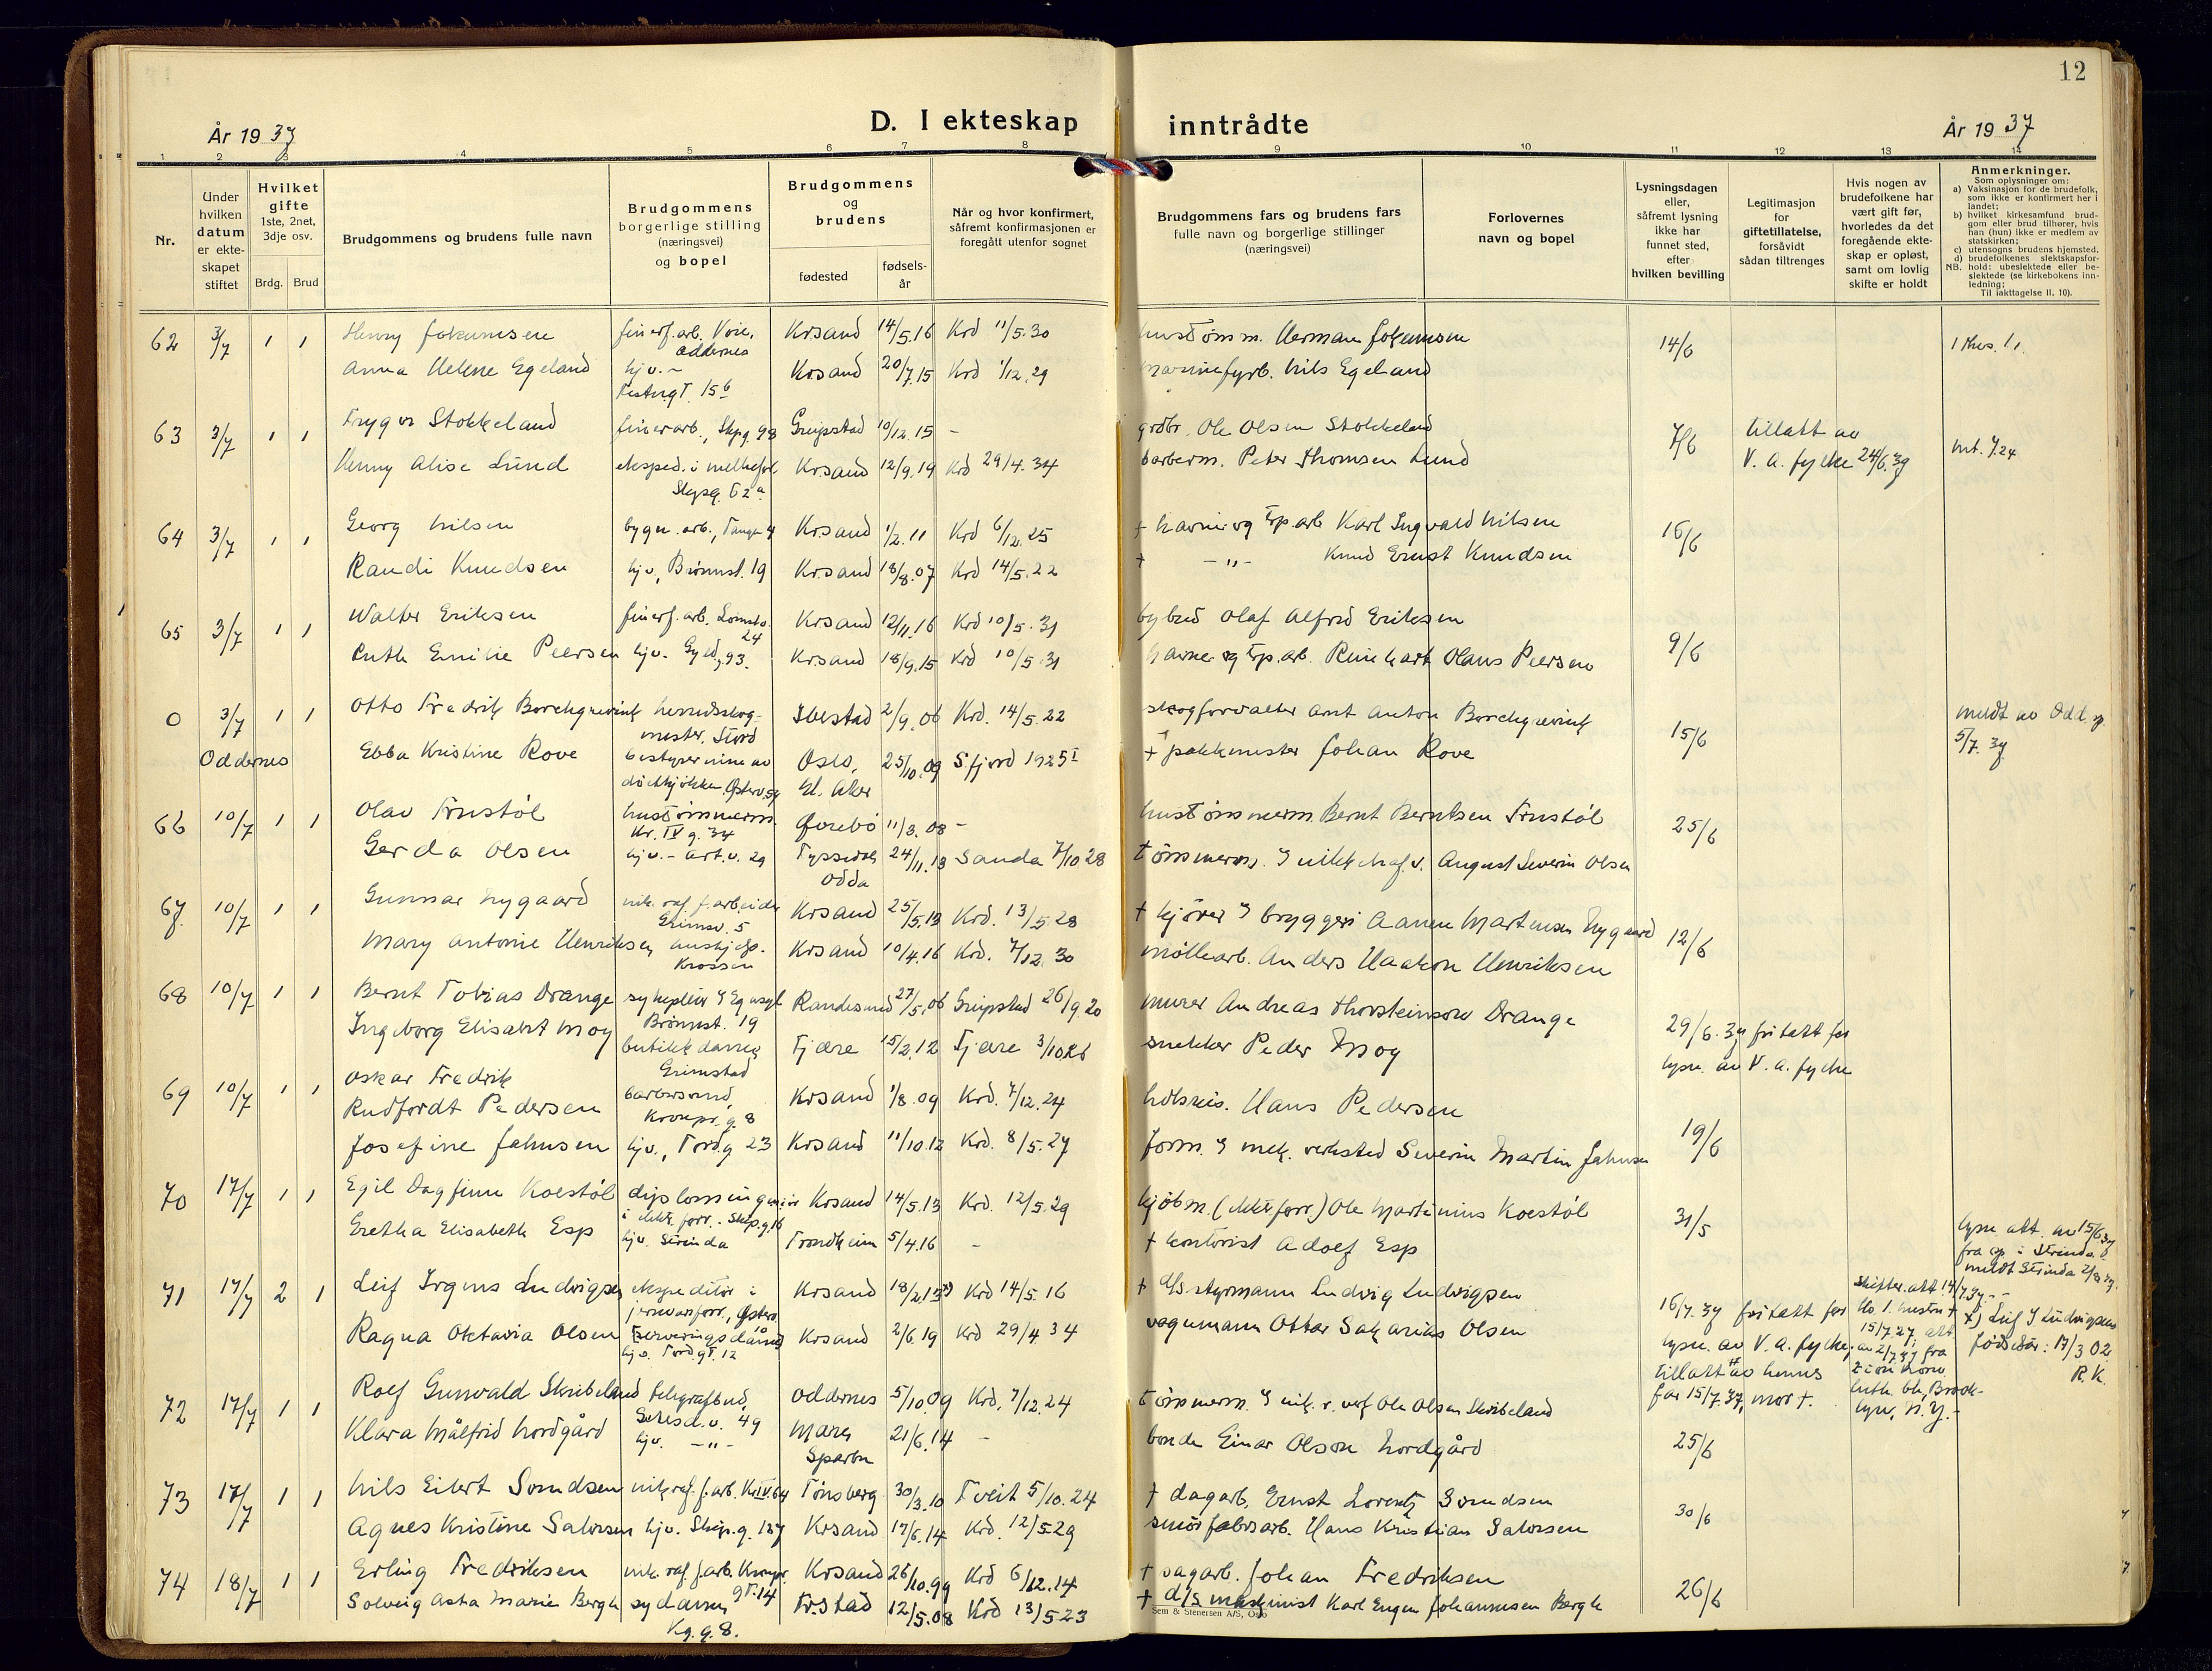 12
År 1937
D. I ekteskap inntrådte
År 1937
1 2 3 4 5 6 7 8 9 10 11 12 13 14
Nr.
Under hvilken datum er ekteskapet stiftet
Hvilket gifte 1ste, 2net, 3dje osv.
Brdg. Brud
Brudgommens og brudens fulle navn
Brudgommens borgerlige stilling (næringsvei) og bopel
Brudgommens og brudens
fødested
fødselsår
Når og hvor konfirmert, såfremt konfirmasjonen er foregått utenfor sognet
Brudgommens fars og brudens fars fulle navn og borgerlige stillinger (næringsvei)
Forlovernes navn og bopel
Lysningsdagen eller, såfremt lysning ikke har funnet sted, efter hvilken bevilling
Legitimasjon for giftetillatelse, forsåvidt sådan tiltrenges
Hvis nogen av brudefolkene har vært gift før, hvorledes da det foregående ekteskap er opløst, samt om lovlig skifte er holdt
Anmerkninger.
Som oplysninger om:
a) Vaksinasjon for de brudefolk, som ikke er konfirmert her i landet;
b) hvilket kirkesamfund brudgom eller brud tilhører, hvis han (hun) ikke er medlem av statskirken;
c) utensogns brudens hjemsted.
d) brudefolkenes slektskapsforhold: ubeslektede eller beslektede (se kirkebokens innledning;
NB.
Til iakttagelse II. 10).
62 3/7 1 1 Henny Jokumsen finerf. arb. Voie, Oddernes Krsand 14/5.16 Krd 11/5.30 Herman Jokumsen 14/6
Anna Helene Egeland hjv. - 15 b Krsand 20/7.15 Krd 1/12.29 Nils Egeland
63 3/7 1 1 Trygve Stokkeland finerarb., Skpg. 98 Greipstad 10/12.15 - grdbr. Ole Olsen Stokkeland 7/6 tillatt av
Henny Alise Lund eksped. i Krsand 12/9.19 Krd 29/4.34 barberm. Peter Thomsen Lund V. a. fylke 24/6.37
64 3/7 1 1 Georg Nilsen bygn. arb., Tangen 4 Krsand 1/2.11 Krd 6/12.25 + havne og Karl Ingvald Nilsen 16/6
Randi Knudsen hjv., Brønnst. 19 Krsand 18/8.07 Krd 14/5.22 + -"- Knud Ernst Knudsen
65 3/7 1 1 Walter Eriksen finerf. arb. 24 Krsand 12/11.16 Krd 10/5.31 bybud Olaf Alfred Eriksen 9/6
Ruth Emilie Peersen hjv. Gyld. 93. Krsand 18/9.15 Krd 10/5.31 havne og Reinhart Olaus Peersen
0 3/7 1 1 Otto Fredrik Borchgrevink herredsskogmester, Stord Ibestad 2/9.06 Krd. 14/5.22 skogforvalter Arnt Anton Borchgrevink 15/6 meldt av Odd. 5/7.37
Oddernes Ebba Kristine Rove bestyrerinne av Oslo, Gl. Aker 25/10.09 Sfjord 1925 + pakkmester Johan Rove
66 10/7 1 1 Olav Trustøl hustømmerm. Kr. IV g. 34 Øvrebø 11/3.08 - hustømmerm. Bernt Berntsen Trustøl 25/6
Gerda Olsen hjv. - Art. v. 29 Tyssedal Odda 24/11.13 Sauda 7/10 28 tømmerm. August Severin Olsen
67 10/7 1 1 Gunnar Nygaard nik. raf. f. arbeider Grimsv. 5 Krsand 25/5.13 Krd. 13/5 28 + kjører bryggeri Aanen Martensen Nygaard 12/6
Mary Antonie Henriksen Krossen Krsand 10/4.16 Krd. 7/12.30 møllearb. Anders Haakon Henriksen
68 10/7 1 1 Bernt Tobias Drange sykepleier Brønnst. 19 Randesund 27/5.06 Greipstad 26/9 20 murer Andreas Thorsteinsen Drange 29/6.37 fritatt for
Ingeborg Elisabet Moy butikkdame, Grimstad Fjære 15/2.12 Fjære 3/10 26 snekker Peder Moy lysn. av V. a. fylke
69 10/7 1 1 Oskar Fredrik Rudfordt Pedersen barbersvend, Kronpr. g. 8 Krsand 1/8.09 Krd. 7/12.24 Hans Pedersen 19/6
Josefine Jahnsen hjv., Tord. g 23 Krsand 11/10.12 Krd. 8/5.27 form. mek. verksted Severin Martin Jahnsen
70 17/7 1 1 Egil Dagfinn Koestøl diplomingeniør i elektr. forr. - Skip. g. 16 Krsand 14/5.13 Krd. 12/5.29 kjøbm. (elektr. forr.) Ole Martinius Koestøl 31/5
Gretha Elisabeth Esp hjv. Strinda Trondheim 5/4.16 - + kontorist Adolf Esp lysn. att. av 15/6 37 fra sp. i Strinda. meldt Strinda
71 17/7 2 1 Leif Irgens Ludvigsen ekspeditør i Krsand 18/2.13 x) Krd 14/5.16 + d/s. styrmann Ludvig Ludvigsen 16/7.37 fritatt for
Ragna Oktavia Olsen serveringsdame hjv. Tordgt. 12 Krsand 2/6.19 Krd 29/4 34 vognmann Ottar Sakarias Olsen lysn. av V. a. fylke,
tillatt av hennes far 15/7.37, mor +. skifter. att 14/7.37
x) Leif Ludvigsens fødselsår: 17/3 02 R.K.
72 17/7 1 1 Rolf Gunvald Skribeland telegrafbud, Setesd. v. 49 Oddernes 5/10.09 Krd. 7/12.24 tømmerm. Ole Olsen Skribeland 25/6
Klara Målfrid Nordgård hjv. -"- Mære Sparbu 21/6.14 - bonde Einar Olson Nordgård
73 17/7 1 1 Nils Eilert Svendsen nik. raf. f. arb. Kr. IV 64 Tønsberg 30/3.10 Tveit 5/10.24 + dagarb. Ernst Lorentz Svendsen 30/6
Agnes Kristine Salvesen hjv. Skip. g. 127 Krsand 17/6.14 Krd. 12/5 29 Hans Kristian Salvesen
74 18/7 1 1 Erling Fredriksen nik. raf. f. arb. Kronpr. gt. 14 Krsand 26/10.99 Krd 6/12.14 + sagarb. Johan Fredriksen 26/6
Solveig Asta Marie Bergh sydame, Kg. g. 8. Frstad 12/5.08 Krd 13/5 23 + d/s maskinist Karl Eugen Johannesen Bergh
Sem & Stenersen A/S, Oslo